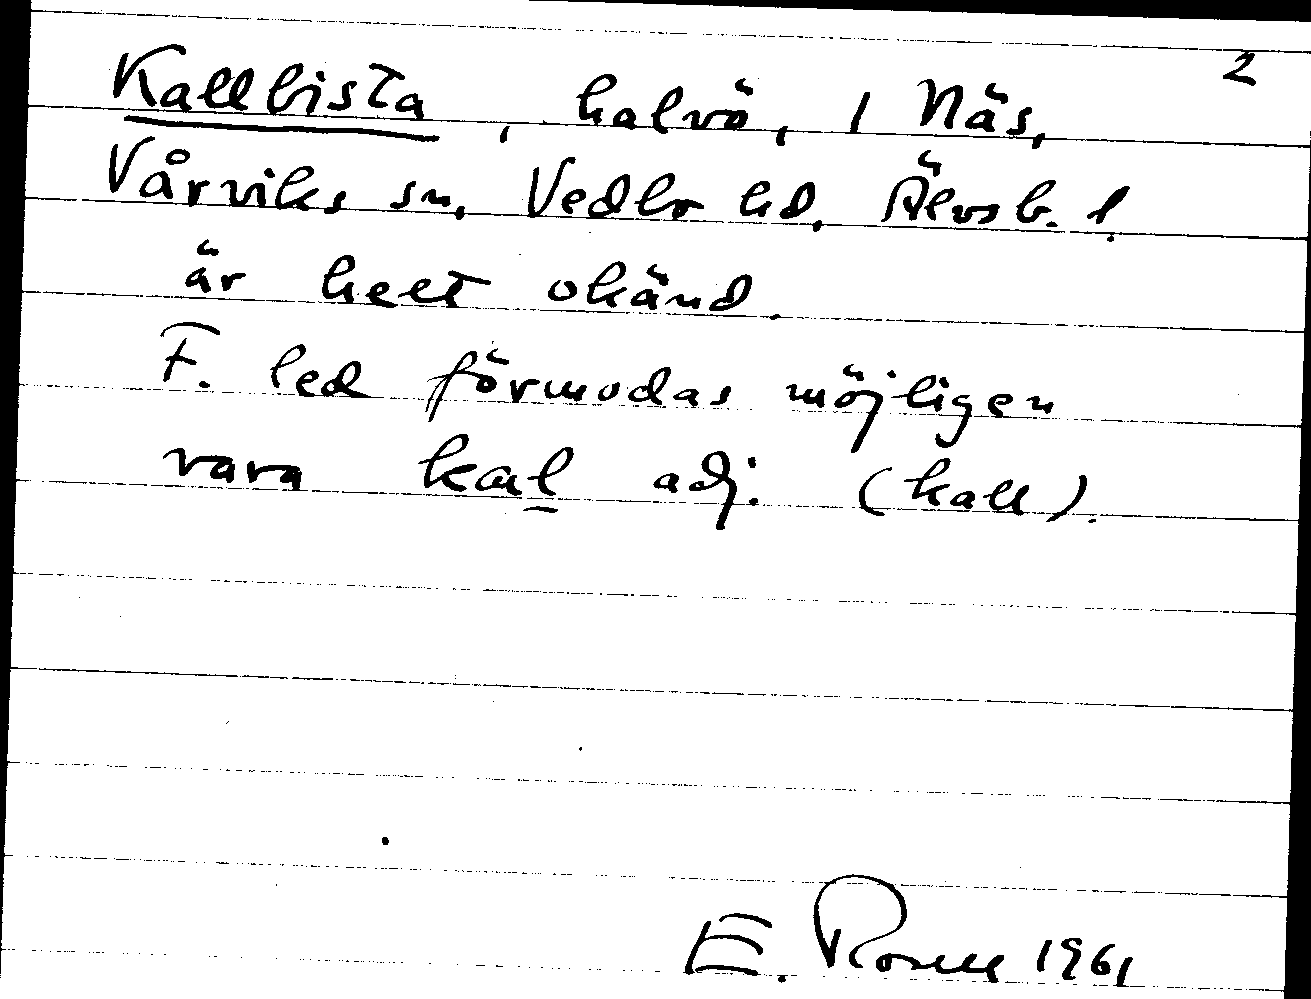 2
Kallbista, halvö, 1 Näs,
Vårviks sn, Vedbo hd, Älvsb. l.
är helt okänd.
F. led förmodas möjligen
vara kal adj. (kall).
E. Rosell 1961